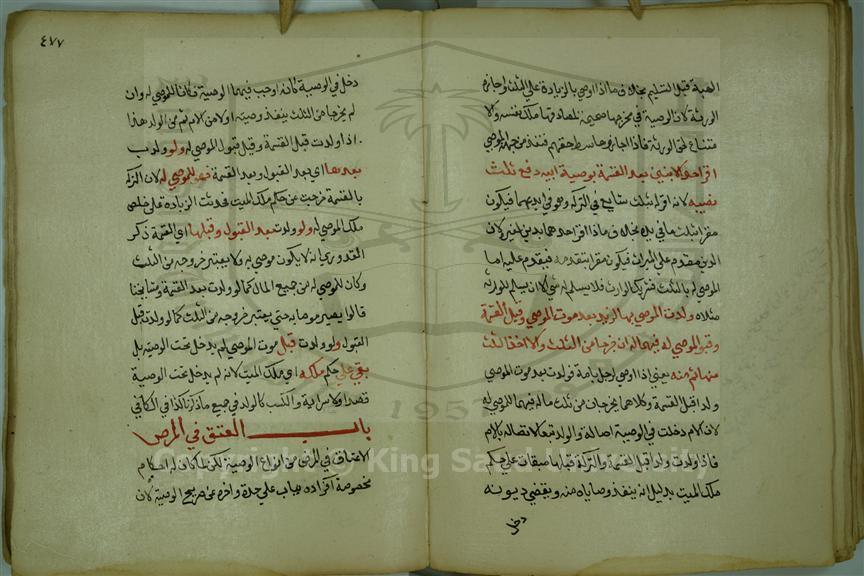 الهبة قبل التسليم بخلاف ما اذا اوصى بالزيادة على الثلث واجاز
الورثة لان الوصية في مخرجها صحيحة لمصادفتها ملك نفسه والا
متناع لحق الورثة فاذا اجازوها سقط حقهم فتنفذ من جهة الموصي
اقر احد الابنين بعد القسمة بوصية ابيه دفع ثلث
نصيبه لانه اقر له بثلث شايع في التركة وهو في ايديهما فيكون
مقرا بثلث ما في يده بخلاف ما اذا اقر احدهما بدين لغيره لان
الدين مقدم على الميراث فيكون مقرا بتقدمه فيقدم عليه اما
الموصى له بالثلث فشريك الوارث فلا يسلم له شئ الا ان يسلم للورثة
مثلاه ولدت الموصى بها الولد بعد موت الموصي وقبل القسمة
وقبول الموصى له فهما له ان خرجا من الثلث والا اخذ الثلث
منها ثم منه يعني اذا اوصى لرجل بامة فولدت بعد موت الموصي
ولدا قبل القسمة وكلاهما يخرجان من ثلث ماله فهما للموصى له
لان الام دخلت في الوصية اصالة والولد تبعا لاتصاله بالام
فاذا ولدت ولدا قبل القسمة والتركة قبلها مبقاة على حكم
ملك الميت بدليل انه ينفذ وصاياه منه ويقضي ديونه
دخل
٤٧٧
دخل في الوصية كانه اوجب فيهما الوصية فكانا للموصى له وان
لم يخرجا من الثلث ينفذ وصيته اولا من الام ثم من الولد هذا
اذا ولدت قبل القسمة وقبل قبول الموصى له ولو ولدت
بعدهما اي بعد القبول وبعد القسمة فهو للموصى له لان التركة
بالقسمة خرجت عن حكم ملك الميت فحدثت الزيادة على خالص
ملك الموصى له ولو ولدت بعد القبول وقبلها اي القسمة ذكر
القدوري انه لا يكون موصى به ولا يعتبر خروجه من الثلث
وكان للموصى له من جميع المال كما لو ولدت بعد القسمة ومشايخنا
قالوا يصير موصا به حتى يعتبر خروجه من الثلث كما لو ولدت قبل
القبول ولو ولدت قبل موت الموصي لم يدخل تحت الوصية بل
بقي على حكم ملكه اي ملك الميت لانه لم يدخل تحت الوصية
قصدا ولا سراية والكسب كالولد في جميع ما ذكرنا كذا في الكافي
باب العتق في المرض
الاعتاق في المرض من انواع الوصية لكن لما كان له احكام
مخصوصة افرده بباب على حدة واخره عن صريح الوصية لان
1957
Copyright © King Saud University